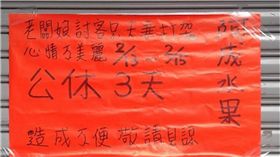 老闆娘討客兄
心情不美麗 2/13~2/15
公休3天
造成不便 敬請見諒
成水果